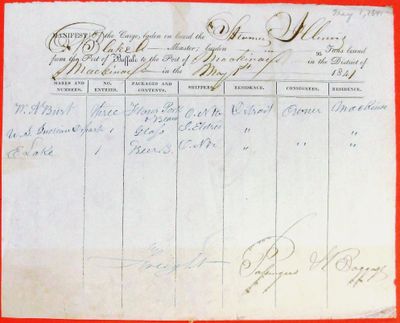 May 1, 1841
MANIFEST of the Cargo, laden on board the Steamer Illinois
Blake Master; burden 95 Tons bound
from the Port of Buffalo to the Port of Mackinac in the District of
Mackinac in the May 1st 1841
MARKS AND NUMBERS. NO. ENTRIES. PACKAGES AND CONTENTS. SHIPPERS. RESIDENCE. CONSIGNEES. RESIDENCE.
W. A Burt three Flour Pork & Beans Detroit Owner Mackinac
U.S. Indian Depart 1 Glass " "
E Lake 1 Beer B. " "
No Freight Passengers & Baggage